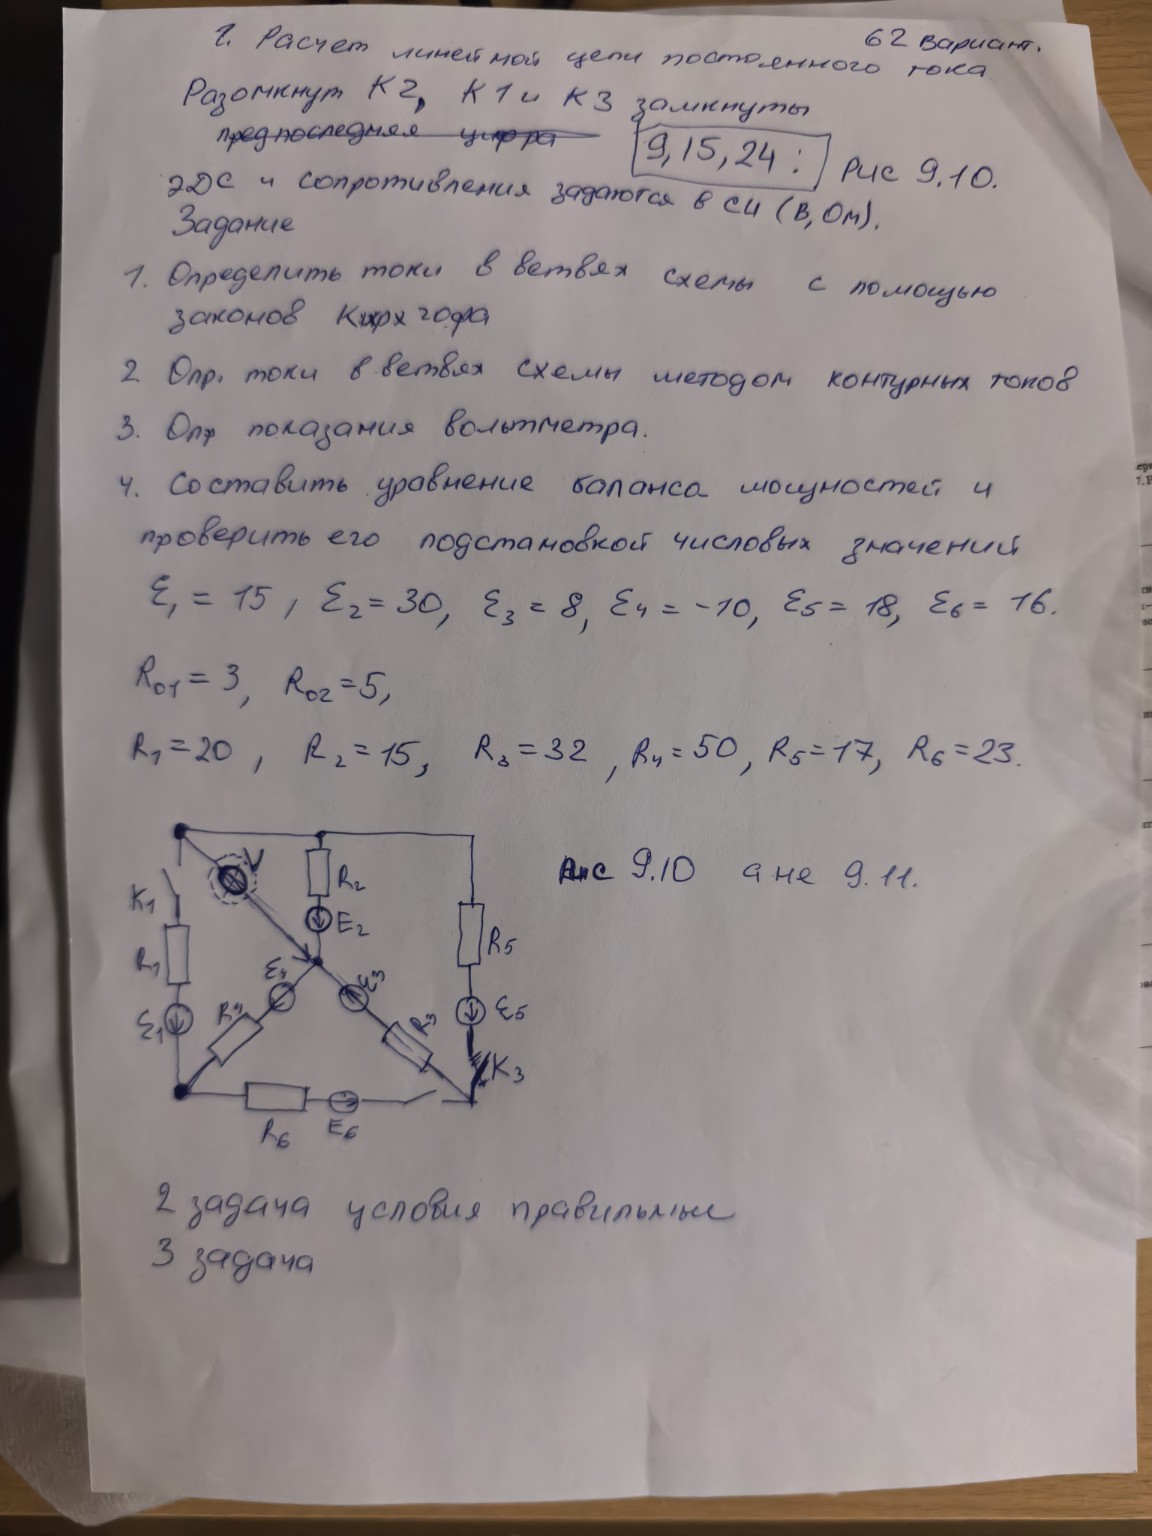 62 вариант.
1. Расчет линейной цепи постоянного тока
Разомкнут К2, К1 и К3 замкнуты
предпоследняя цифра 9,15,24: Рис 9.10.
ЭДС и сопротивления задаются в СИ (В, Ом).
Задание
1. Определить токи в ветвях схемы с помощью
законов Кирхгофа
2 Опр. токи в ветвях схемы методом контурных токов
3. Опр показания вольтметра.
4. Составить уравнение баланса мощностей и
проверить его подстановкой числовых значений
Ɛ1 = 15, Ɛ2 = 30, Ɛ3 = 8, Ɛ4 = -10, Ɛ5 = 18, Ɛ6 = 16.
R01 = 3, R02 = 5,
R1 = 20, R2 = 15, R3 = 32, R4 = 50, R5 = 17, R6 = 23.
V
R2
K1
E2
R1
R5
Ɛ4
Ɛ3
Ɛ1
R4
R3
Ɛ5
K3
R6
E6
Рис 9.10 а не 9.11.
2 задача условия правильные
3 задача